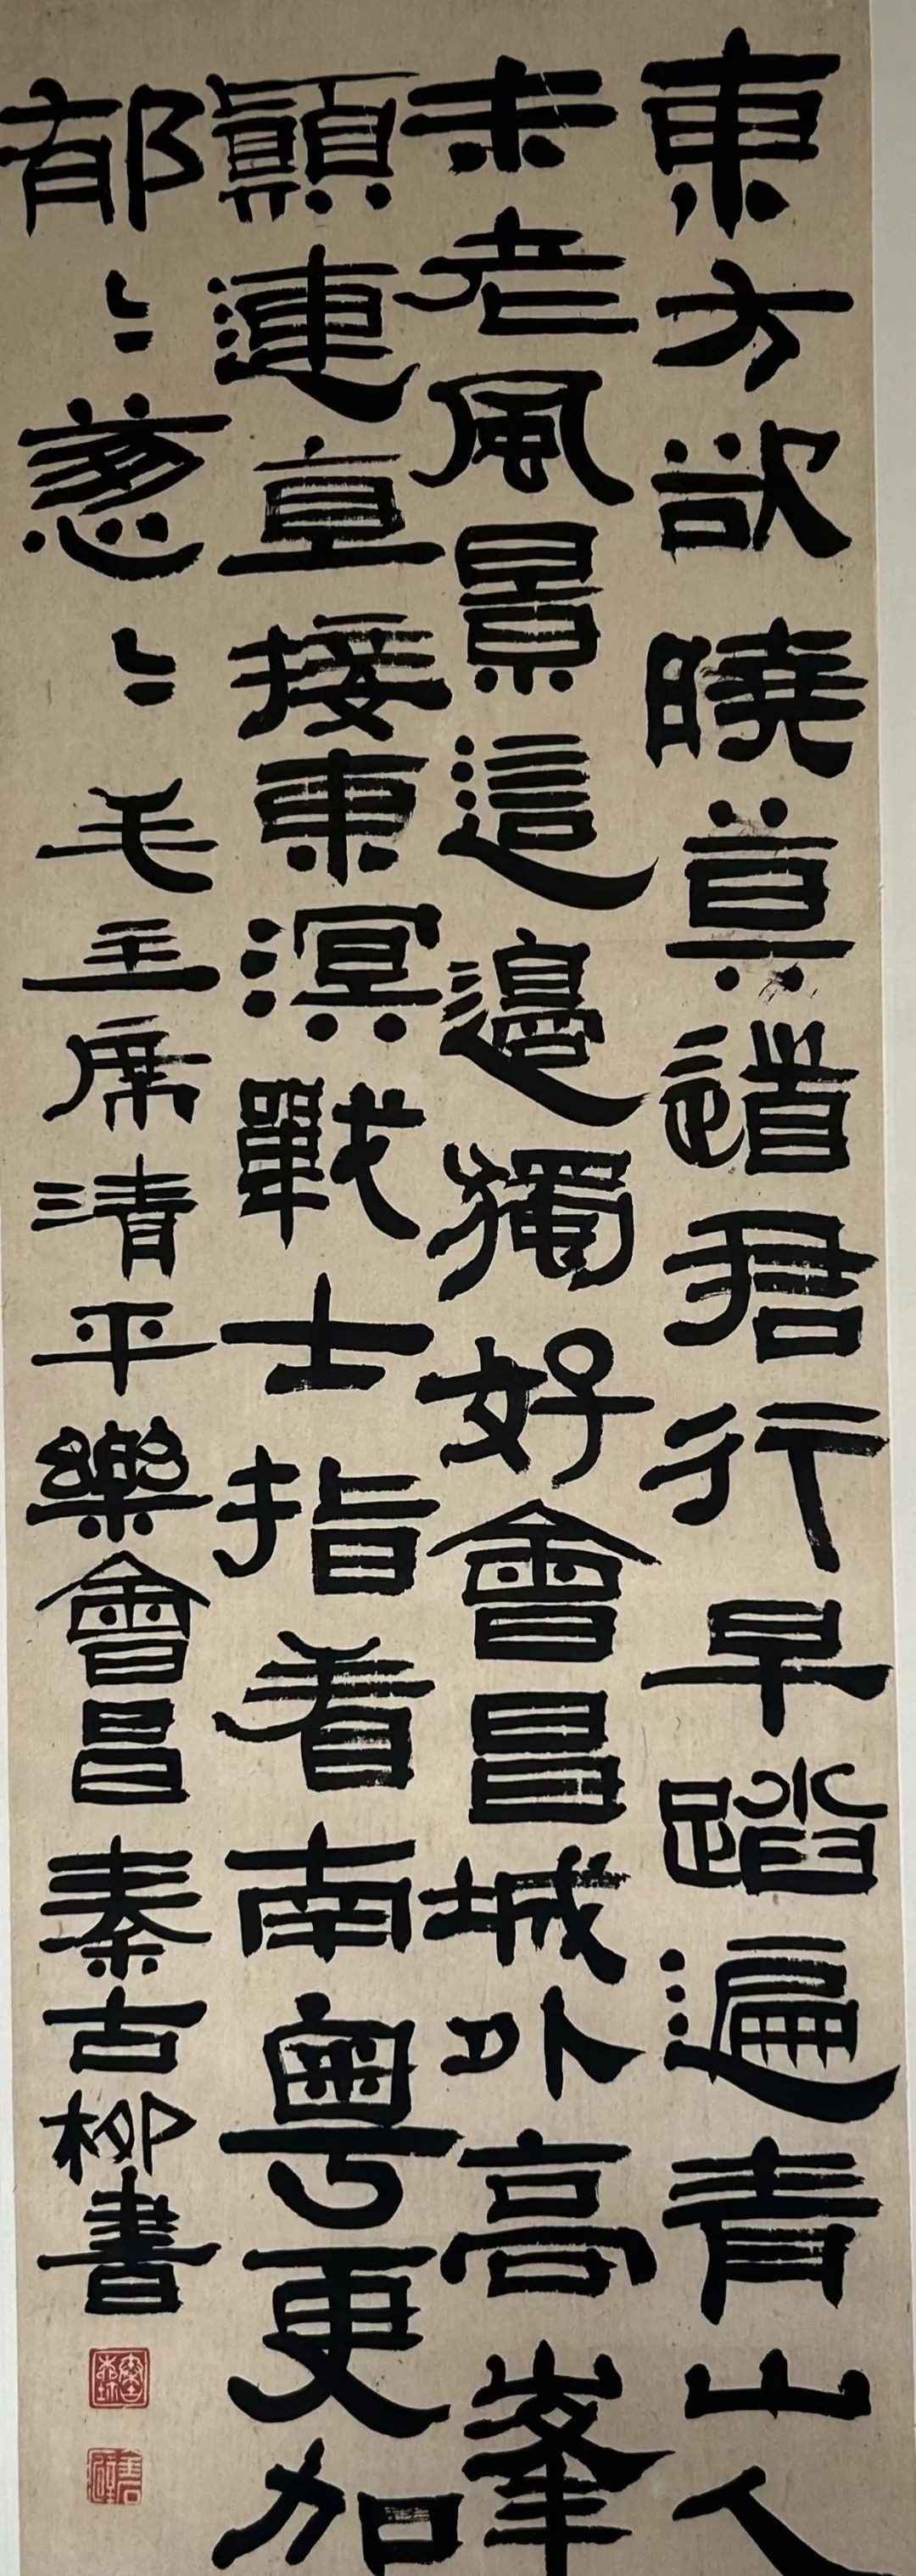 東方欲曉莫道君行早踏遍青山人
未老風景這邊獨好會昌城外高峯
顛連直接東溟戰士指看南粵更加
郁〻蔥〻毛主席清平樂會昌秦古柳書